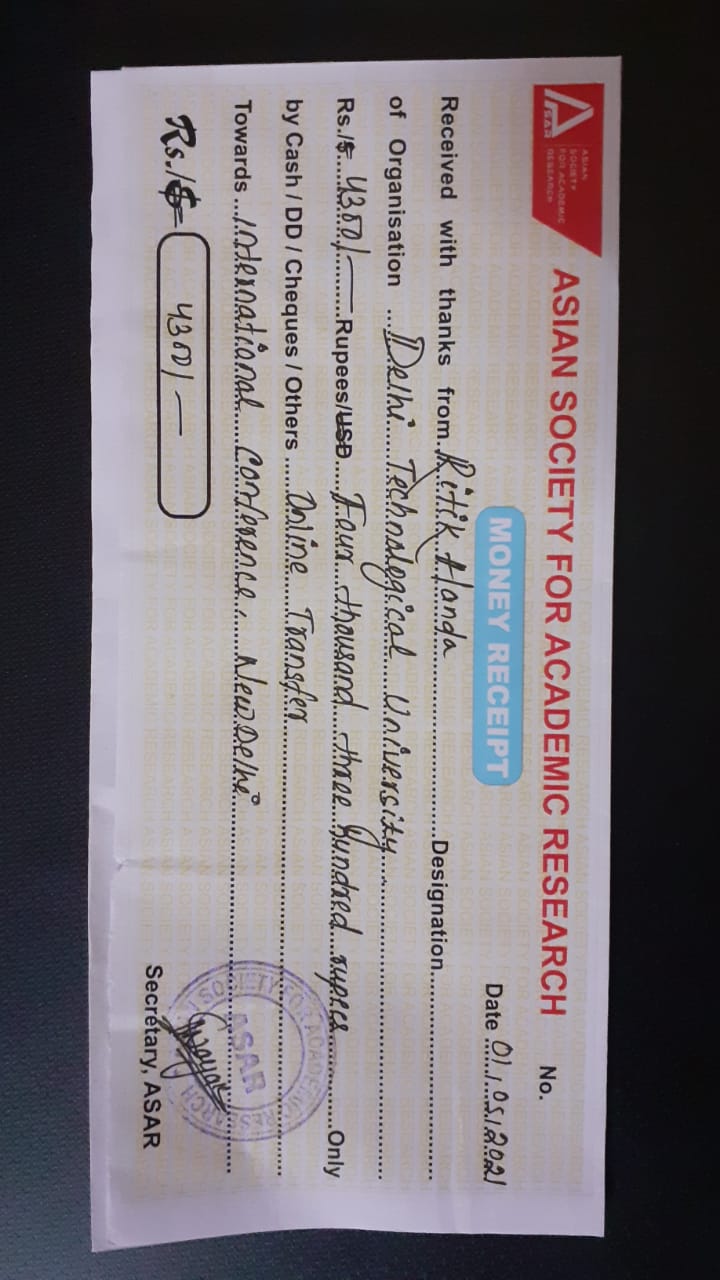 ASAR
ASIAN
SOCIETY
FOR ACADEMIC
RESEARCH
ASIAN SOCIETY FOR ACADEMIC RESEARCH
No.
MONEY RECEIPT
Date 01.05.2021
Received with thanks from Ritik Handa Designation
of Organisation Delhi Technological University
Rs./$ 4300/- Rupees/USD Four thousand three hundred rupees Only
by Cash / DD / Cheques / Others Online Transfer
Towards International Conference, New Delhi
Rs./$ 4300/-
SOCIETY FOR ACADEMIC RESEARCH
ASAR
Secretary, ASAR